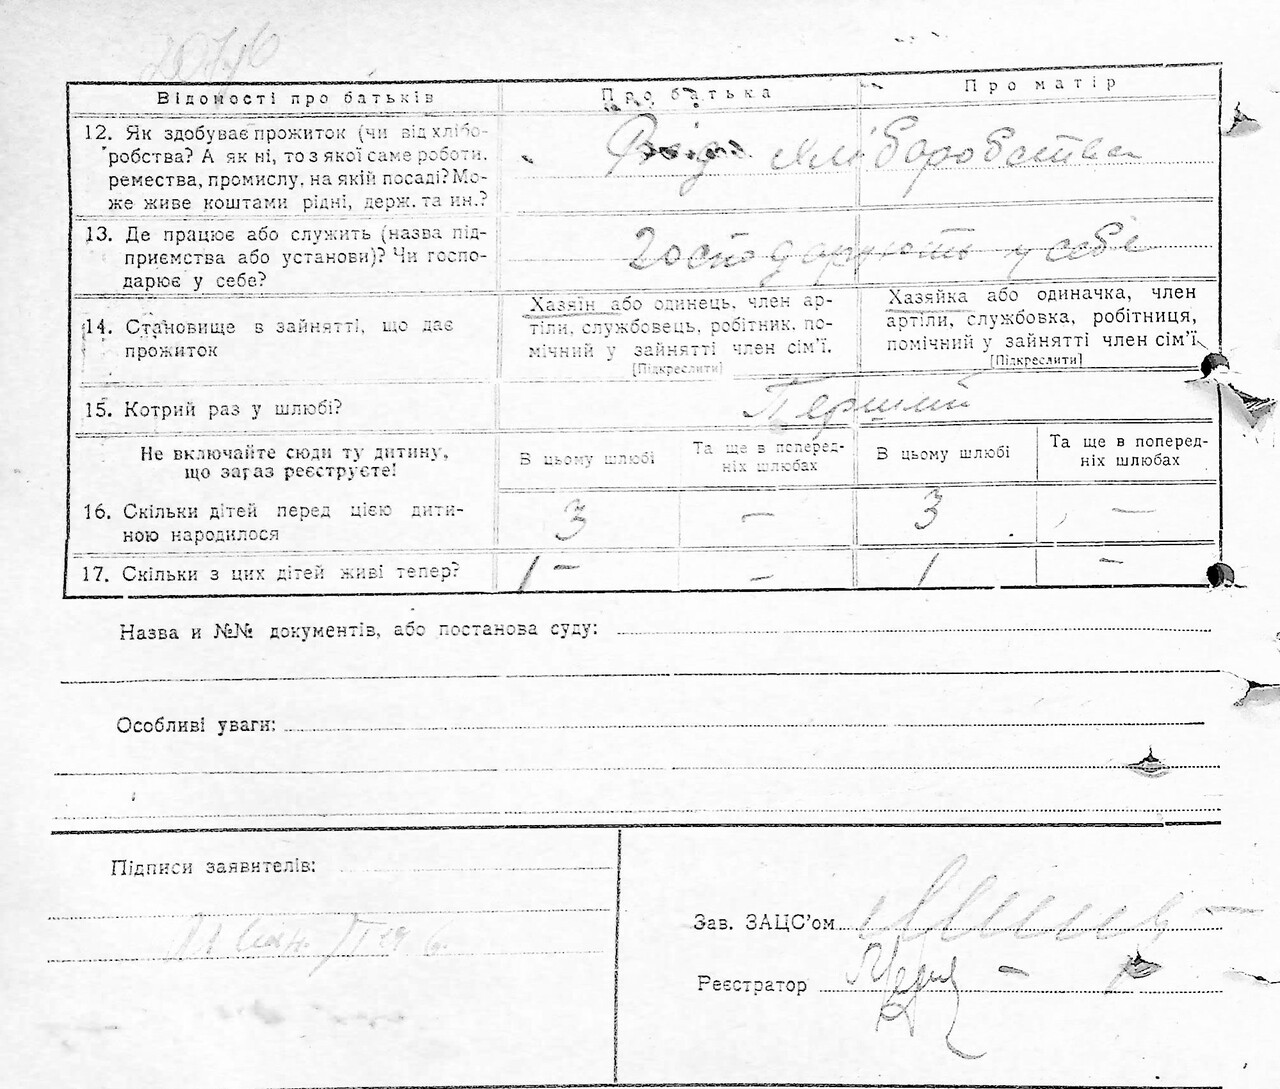 Відомості про батьків
Про батька
Про матір
12. Як здобуває прожиток (чи від хлібо-
робства? А як ні, то з якої саме роботи,
ремества, промислу, на якій посаді? Мо-
же живе коштами рідні, держ. та ин.?
Від хліборобства
13. Де працює або служить (назва під-
приємства або установи)? Чи госпо-
дарює у себе?
Господарюють у себе
14. Становище в зайнятті, що дає
прожиток
Хазяїн або одинець, член ар-
тіли, службовець, робітник, по-
мічний у зайнятті член сім'ї.
[Підкреслити]
Хазяйка або одиначка, член
артіли, службовка, робітниця,
помічний у зайнятті член сім'ї
[Підкреслити]
15. Котрий раз у шлюбі?
Перший
Не включайте сюди ту дитину,
що зараз реєструєте!
В цьому шлюбі
Та ще в поперед-
ніх шлюбах
В цьому шлюбі
Та ще в поперед-
ніх шлюбах
16. Скільки дітей перед цією дити-
ною народилося
3 – 3 –
17. Скільки з цих дітей живі тепер?
1 – – 1 –
Назва и №№ документів, або постанова суду:
Особливі уваги:
Підписи заявителів:
Зав. ЗАЦС'ом
Реєстратор